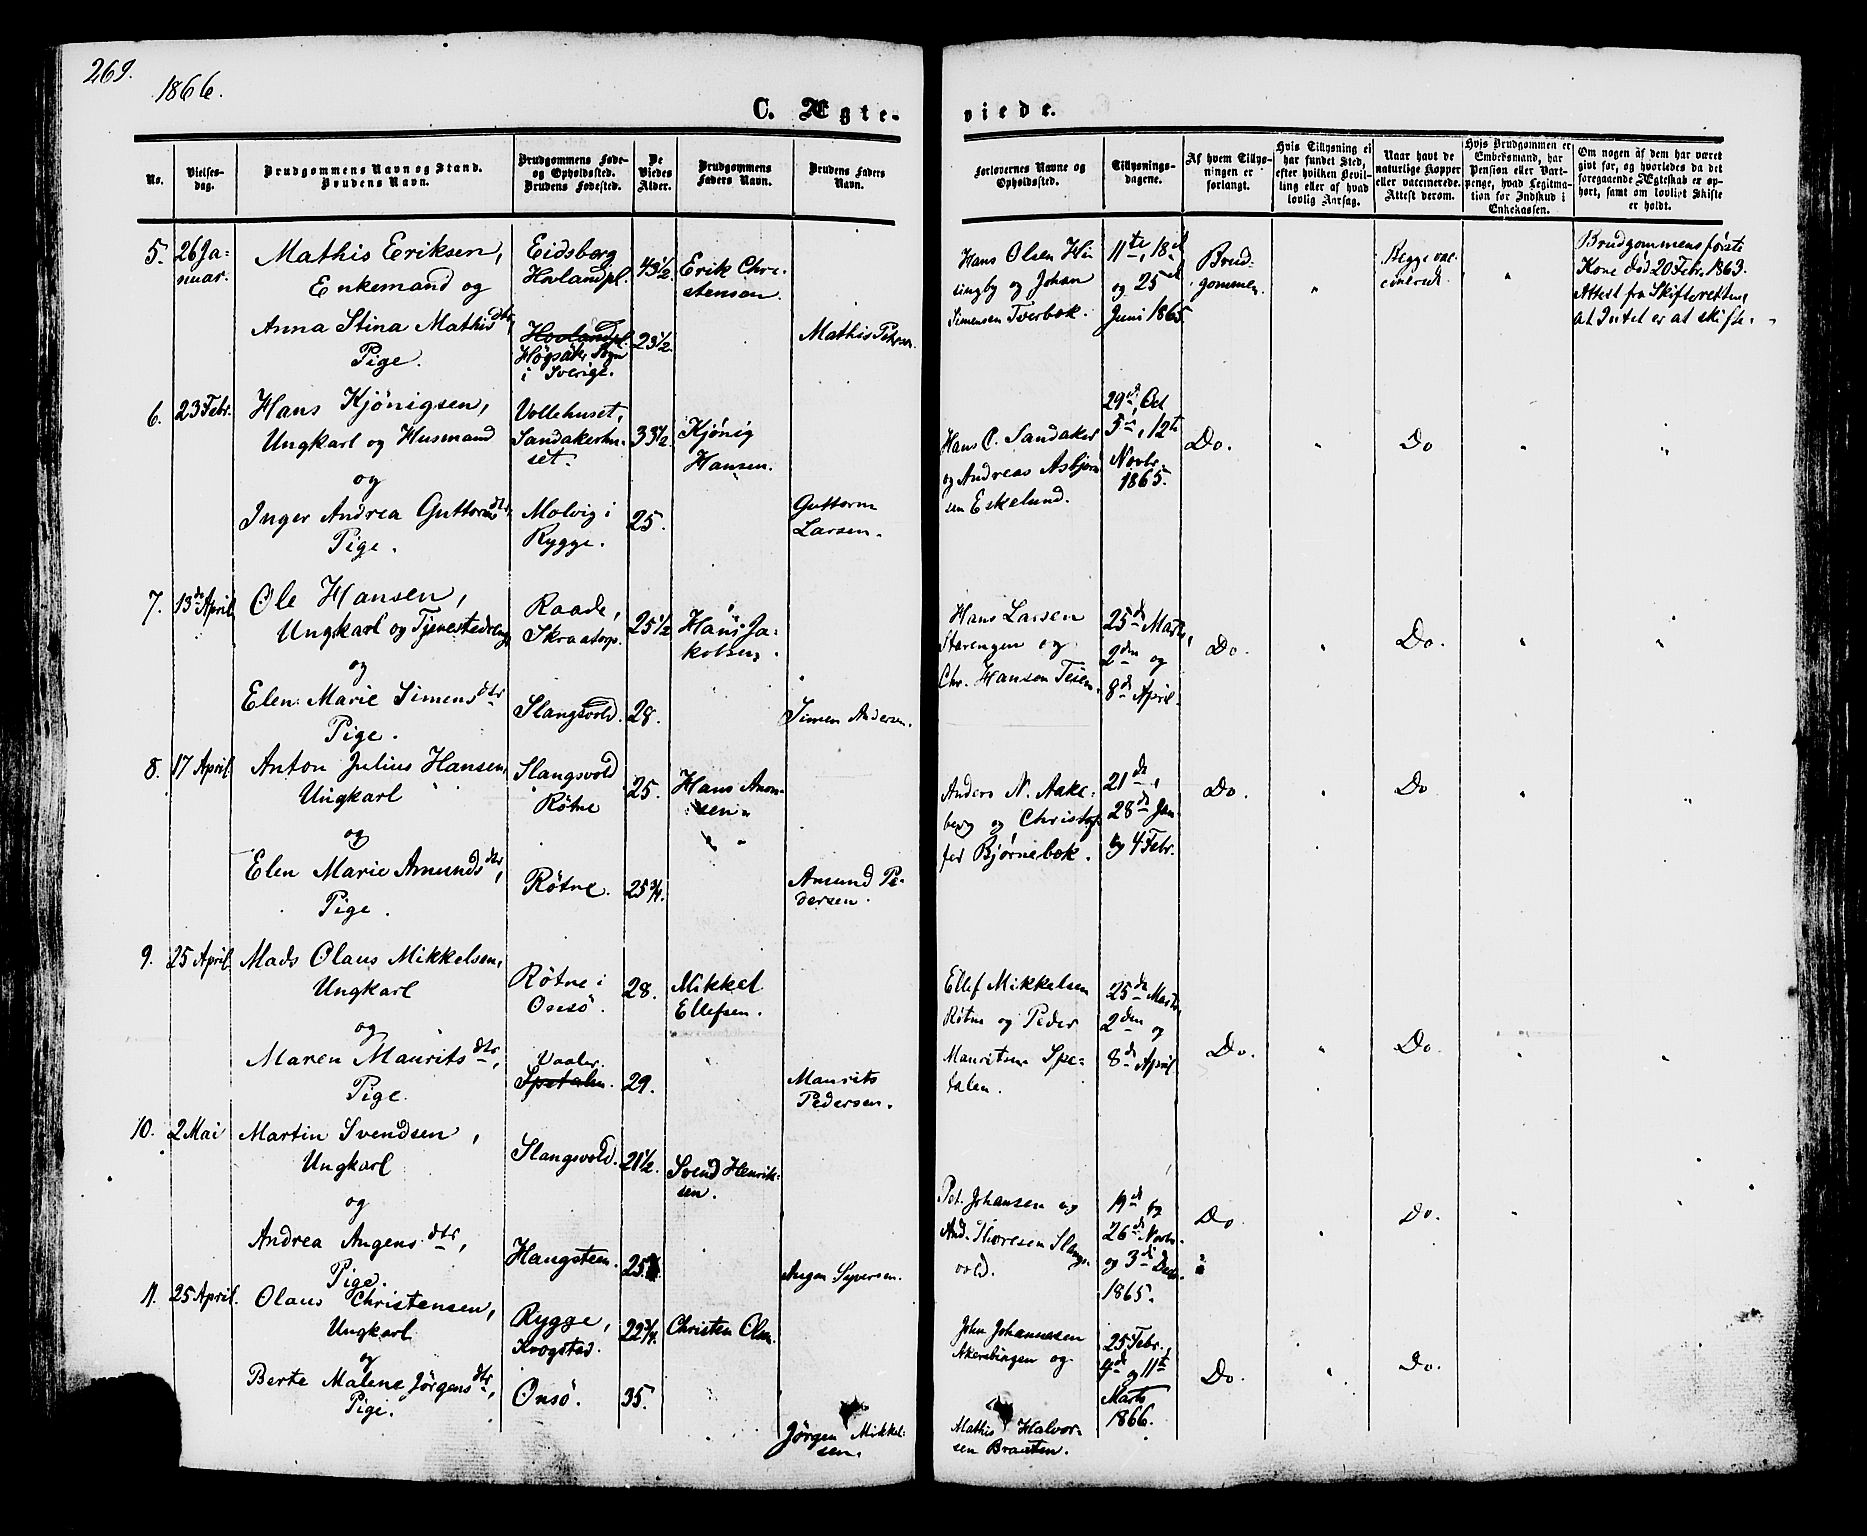 269.
1866.
C. Ægte-
viede.
No.
Vielses-
dag.
Brudgommens Navn og Stand.
Brudens Navn.
Brudgommens Føde-
og Opholdssted.
Brudens Fødested.
De
Viedes
Alder.
Brudgommens
Faders Navn.
Brudens Faders
Navn.
Forlovernes Navne og
Opholdssted.
Tillysnings-
dagene.
Af hvem Tillys-
ningen er
forlangt.
Hvis Tillysning ei
har fundet Sted,
efter hvilken Bevil-
ling eller af hvad
lovlig Aarsag.
Naar havt de
naturlige Kopper
eller vaccinerede.
Attest derom.
Hvis Brudgommen er
Embedsmand, har
Pension eller Vart-
penge, hvad Legitima-
tion for Indskud i
Enkekassen.
Om nogen af dem har været
gift før, og hvorledes da det
foregaaende Ægteskab er op-
hørt, samt om lovligt Skifte
er holdt.
5.
26 Ja-
nuar.
Mathis Eriksen,
Enkemand og
Anna Stina Mathisdtr,
Pige.
Eidsborg
Hovlandpl.
Hovlandpl.
Högsäter Sogn
i Sverige.
43½
23½
Erik Chri-
stensen.
Mathis Petersen.
Hans Olsen
og Johan
Simensen Tverbæk.
11te, 18d
og 25d
Juni 1865.
Brud-
gommen.
"
Begge vac-
cinerede.
"
Brudgommens første
Kone død 20 Febr. 1863.
Attest fra Skifteretten,
at Intet er at skifte.
6.
23 Febr.
Hans Kjönigsen,
Ungkarl og Husmand
og
Inger Andrea Guttormsdtr,
Pige.
Vollehuset,
Sandakerhu-
set.
Molvig i
Rygge.
33½
25.
Kjönig
Hansen.
Guttorm
Larsen.
Hans C. Sandaker
og Andreas Asbjörn-
sen Eskelund.
29d, Oct
5te, 12te
Novbr.
1865.
Do.
"
Do
"
"
7.
13de April
Ole Hansen,
Ungkarl og Tjenestedreng
og
Elen Marie Simensdtr
Pige.
Raade,
Skraatorp.
Slangsvold.
25½
28.
Hans Ja-
kobsen.
Simen Andersen.
Hans Larsen
Starengen og
Chr. Hansen Teien.
25de Marts,
2den og
8de April.
Do.
"
Do.
"
"
8.
17 April
Anton Julius Hansen,
Ungkarl
og
Elen Marie Amundsdtr,
Pige.
Slangsvold
Røtne
Røtne.
25.
25¾.
Hans Amm-
sen.
Amund Pe-
dersen.
Anders N. Aake-
berg og Christof-
fer Bjørnebæk.
21de,
28de Jan.
og 4 Febr.
Do.
"
Do
"
"
9.
25 April
Mads Olaus Mikkelsen,
Ungkarl
og
Maren Mauritsdtr,
Pige.
Røtne i
Onsö.
Vaaler
Spetalen.
28.
29.
Mikkel
Ellefsen.
Maurits
Pedersen.
Ellef Mikkelsen
Røtne og Peder
Mauritsen Spe-
talen.
25de Marts,
2den og
8de April
Do.
"
Do.
"
"
10.
2 Mai
Martin Svendsen,
Ungkarl
og
Andrea Augensdtr,
Pige.
Slangsvold.
Haugsteen.
21½.
25
Svend Henrik-
sen.
Augen Syversen.
Pet. Johansen og
And. Thoresen Slangs-
vold.
19de og
26de Novbr.
og 3de Decbr.
1865.
Do
"
Do.
"
"
11.
25 April.
Olaus Christensen,
Ungkarl
og
Berte Malene Jörgensdtr,
Pige.
Rygge,
Krogstad.
Onsö.
22¾.
35.
Christen Olsen.
Jörgen Mikkel-
sen.
John Johannesen
Akerebingen og
Mathis Halvor-
sen Braaten.
25 Febr.,
4de og 11te
Marts
1866.
Do.
"
Do.